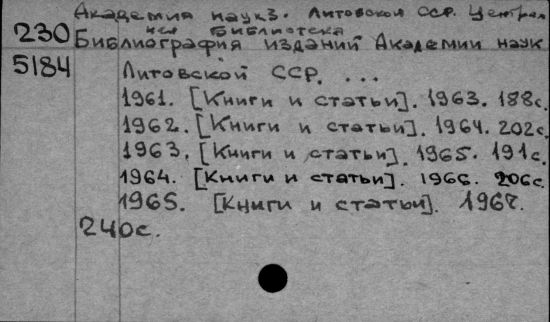 Академия наук. Литовской ССР. Централ
ная библиотека
230 Библиография изданий Академии наук
5184 Литовской ССР. ...
1961. [Книги и статьи]. 1963. 188с.
1962. [Книги и статьи]. 1964. 202с.
1963. [Книги и статьи]. 1965. 191с.
1964. [Книги и статьи]. 1966. 206с.
1965. [Книги и статьи]. 1967.
240с.